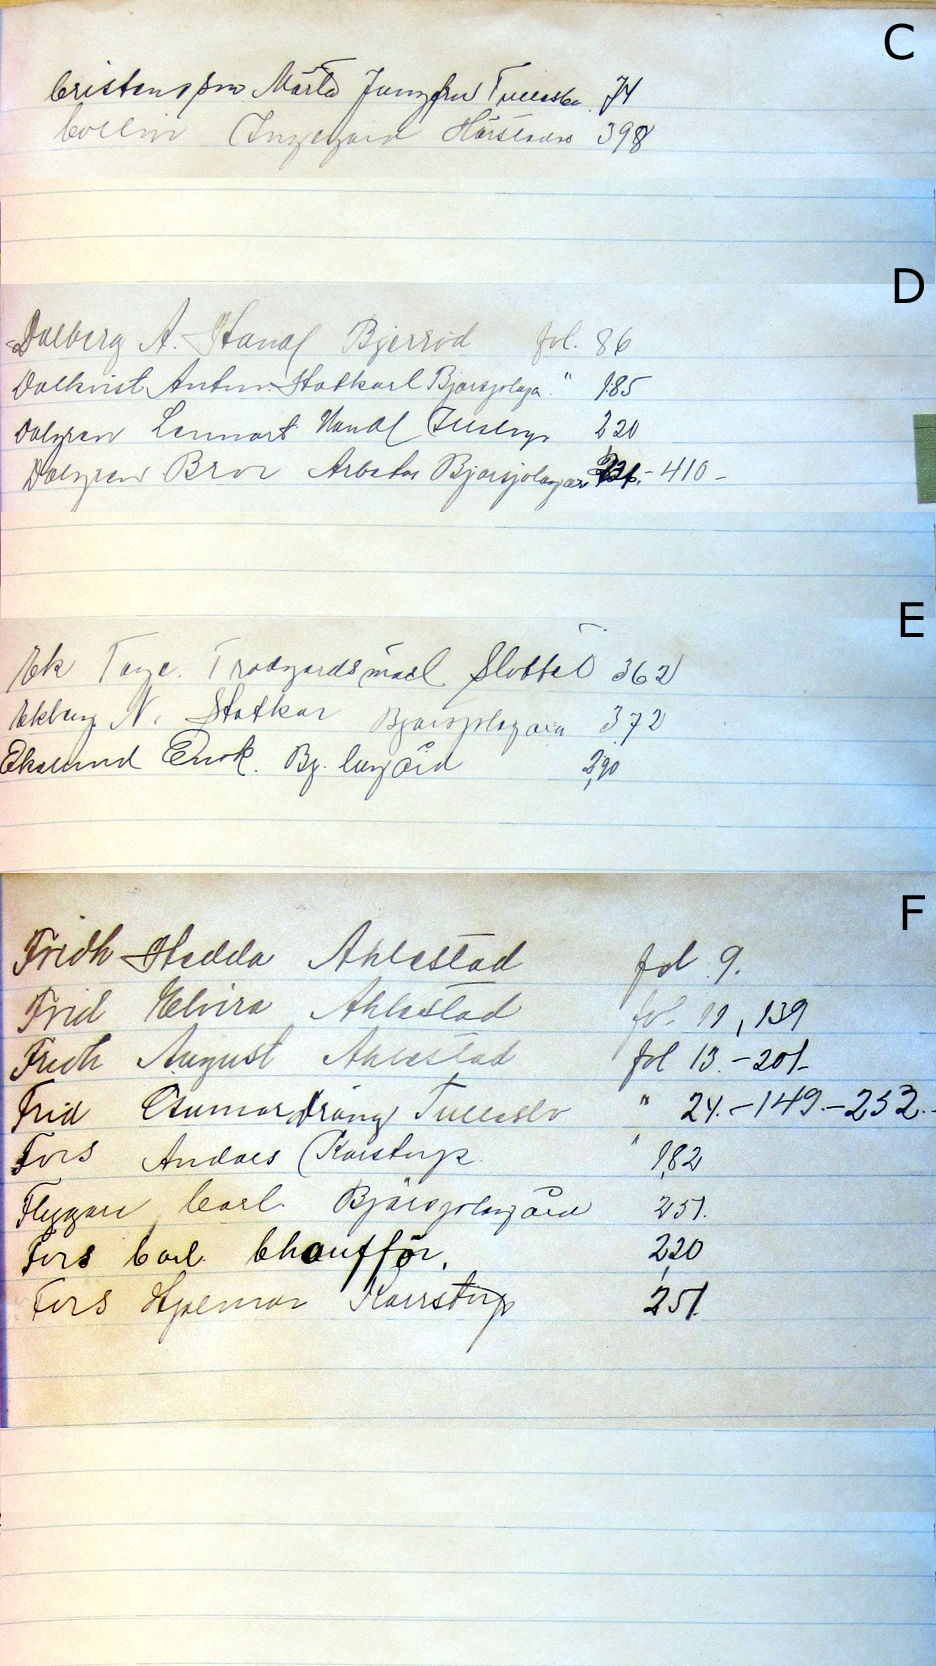 C
Cristensson Märta Jungfru Tullesbo 74
Collin Ingegärd Härstads 398
D
Dalberg A. Handl Bjerröd fol. 86
Dalkvist Anton Statkarl Bjärsjölaga " 185
Dalgren Lennart Handl 220
Dalgren Bror Arbetar Bjärsjölagår 410 -
E
Ek Tage. Trädgårdsmäst Slottet 362
Ekberg N. Statkar Bjärsjölagård 372
Ekelund Enok. Bj. lagård 290
F
Fridh Hedda Ahlestad fol 9.
Frid Elvira Ahlestad fol. 11, 139
Fridh August Ahlestad fol 13. - 201.
Frid Gunnar Dräng Tullesbo " 24. - 149. - 252. -
Fors Anders Karstorp. " 182
Flygare Carl. Bjärsjölagård 251.
Fors Carl Chaufför. 220
Fors Hjalmar Karrstorp 251.